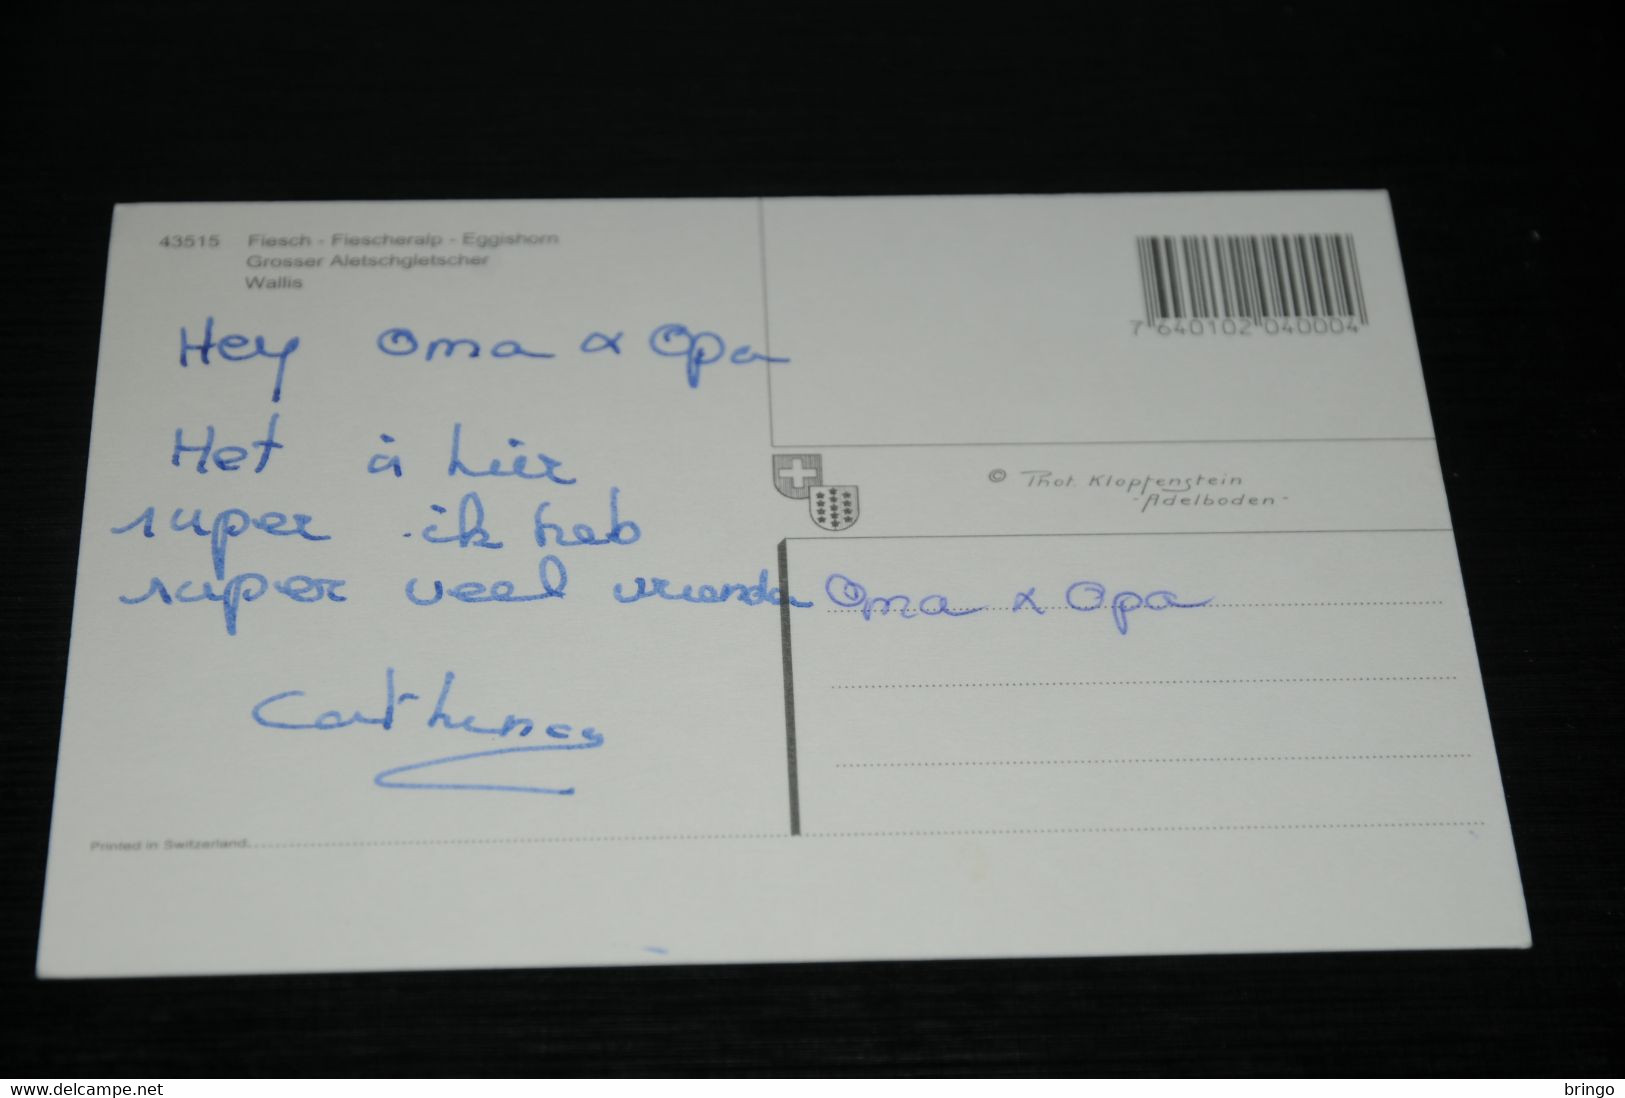 43515 Fiesch - Fiescheralp - Eggishorn
Grosser Aletschgletscher
Wallis
Hey Oma & Opa
Het is hier
super ik heb
super veel
7 640102 040004
© Phot. Klopfenstein
- Adelboden -
Oma & Opa
Printed in Switzerland
www.delcampe.net
bringo